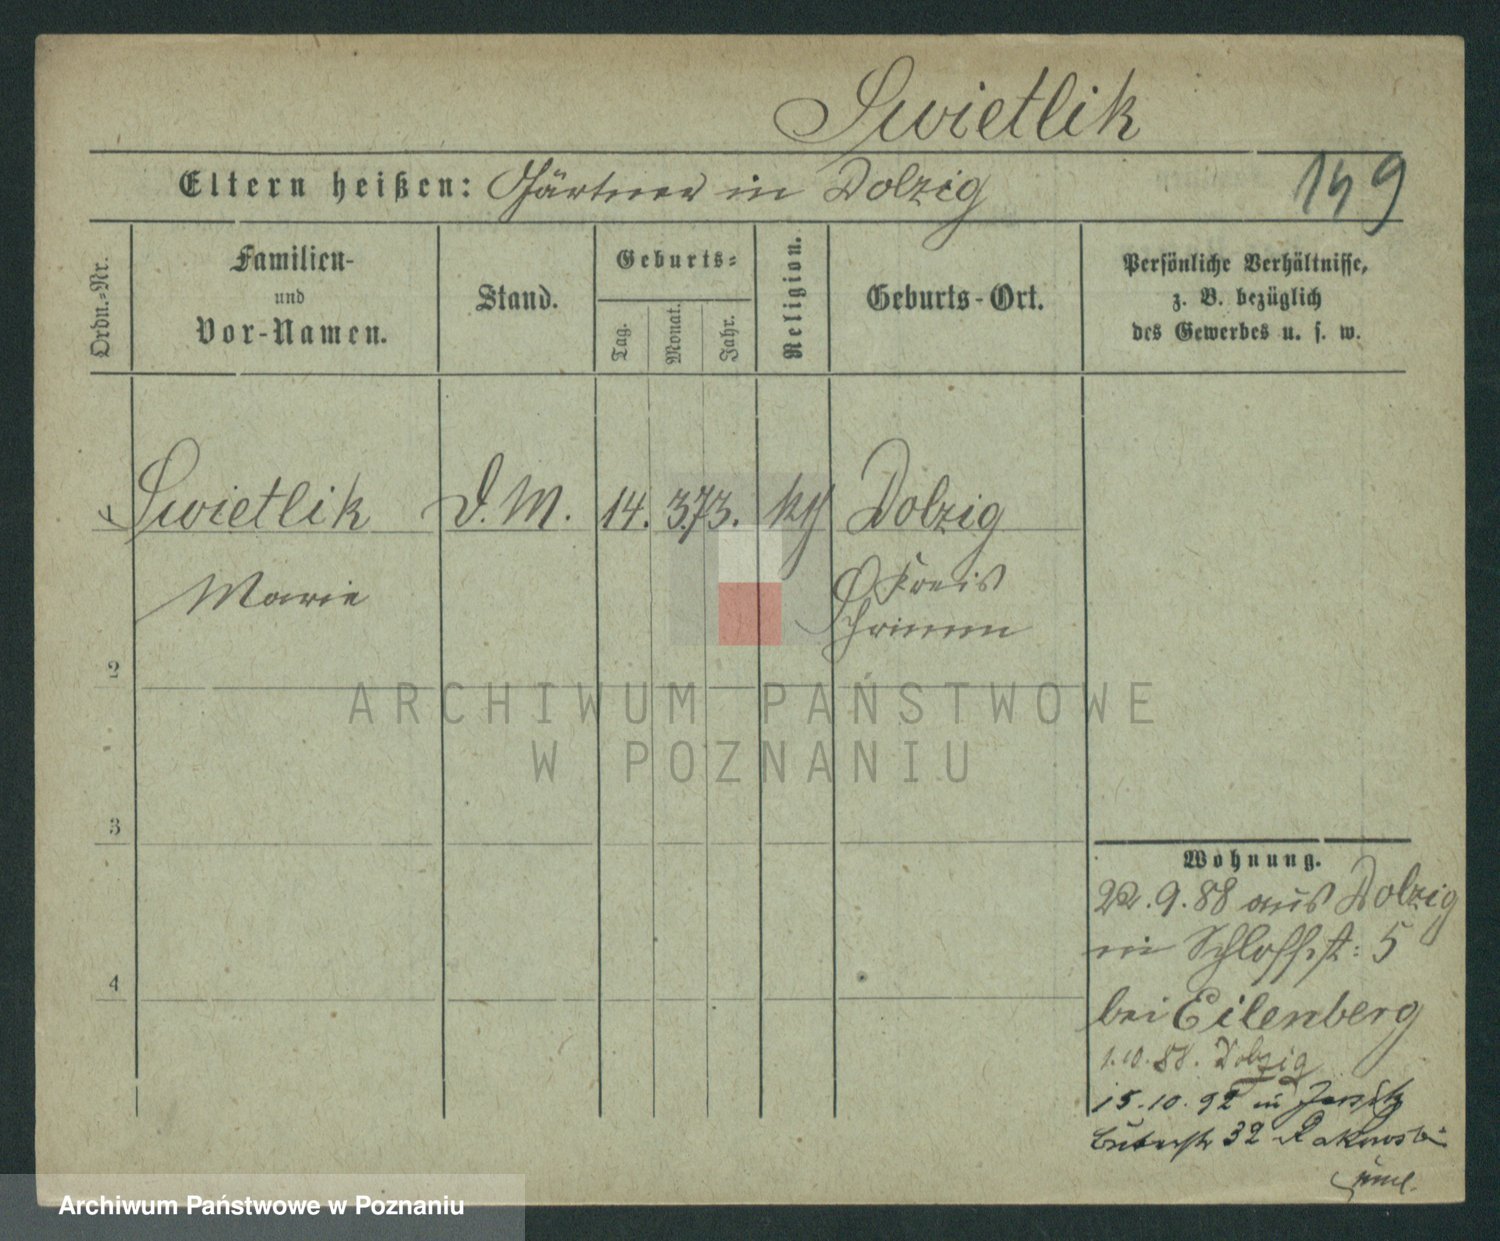 Swietlik
Eltern heißen: Gärtner in Dolzig
149
Ordn.=Nr.
Familien-
und
Vor-Namen.
Stand.
Geburts=
Tag.
Monat.
Jahr.
Religion.
Geburts-Ort.
Persönliche Verhältnisse,
z. B. bezüglich
des Gewerbes u. s. w.
1 Swietlik D.M. 14. 3. 73. kth Dolzig
Marie Kreis
Schrimm
2
3
4
ARCHIWUM PAŃSTWOWE
W POZNANIU
Wohnung.
22.9.88 aus Dolzig
in Schloßst: 5
bei Eilenberg
1.10.88. Dolzig
15.10.92 in Jersitz
32 Rakowski
Archiwum Państwowe w Poznaniu